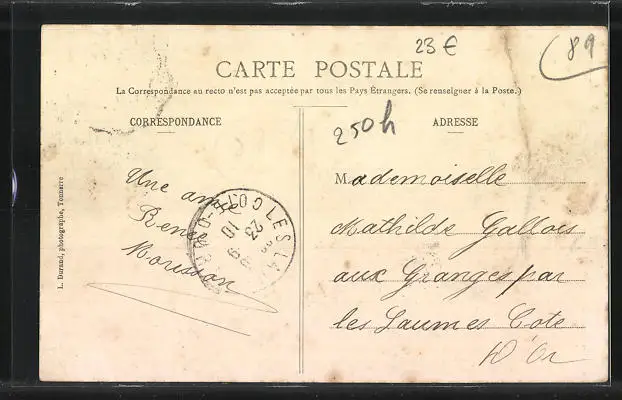 23 €
89
CARTE POSTALE
La Correspondance au recto n'est pas acceptée par tous les Pays Étrangers. (Se renseigner à la Poste.)
CORRESPONDANCE
250h
ADRESSE
Une amie
Renée
Mademoiselle
Mathilde Gallois
aux Granges par
les Laumes Cote
D'Or
LES LAUMES
COTE-D'OR
23
10
L. Durand, photographe, Tonnerre